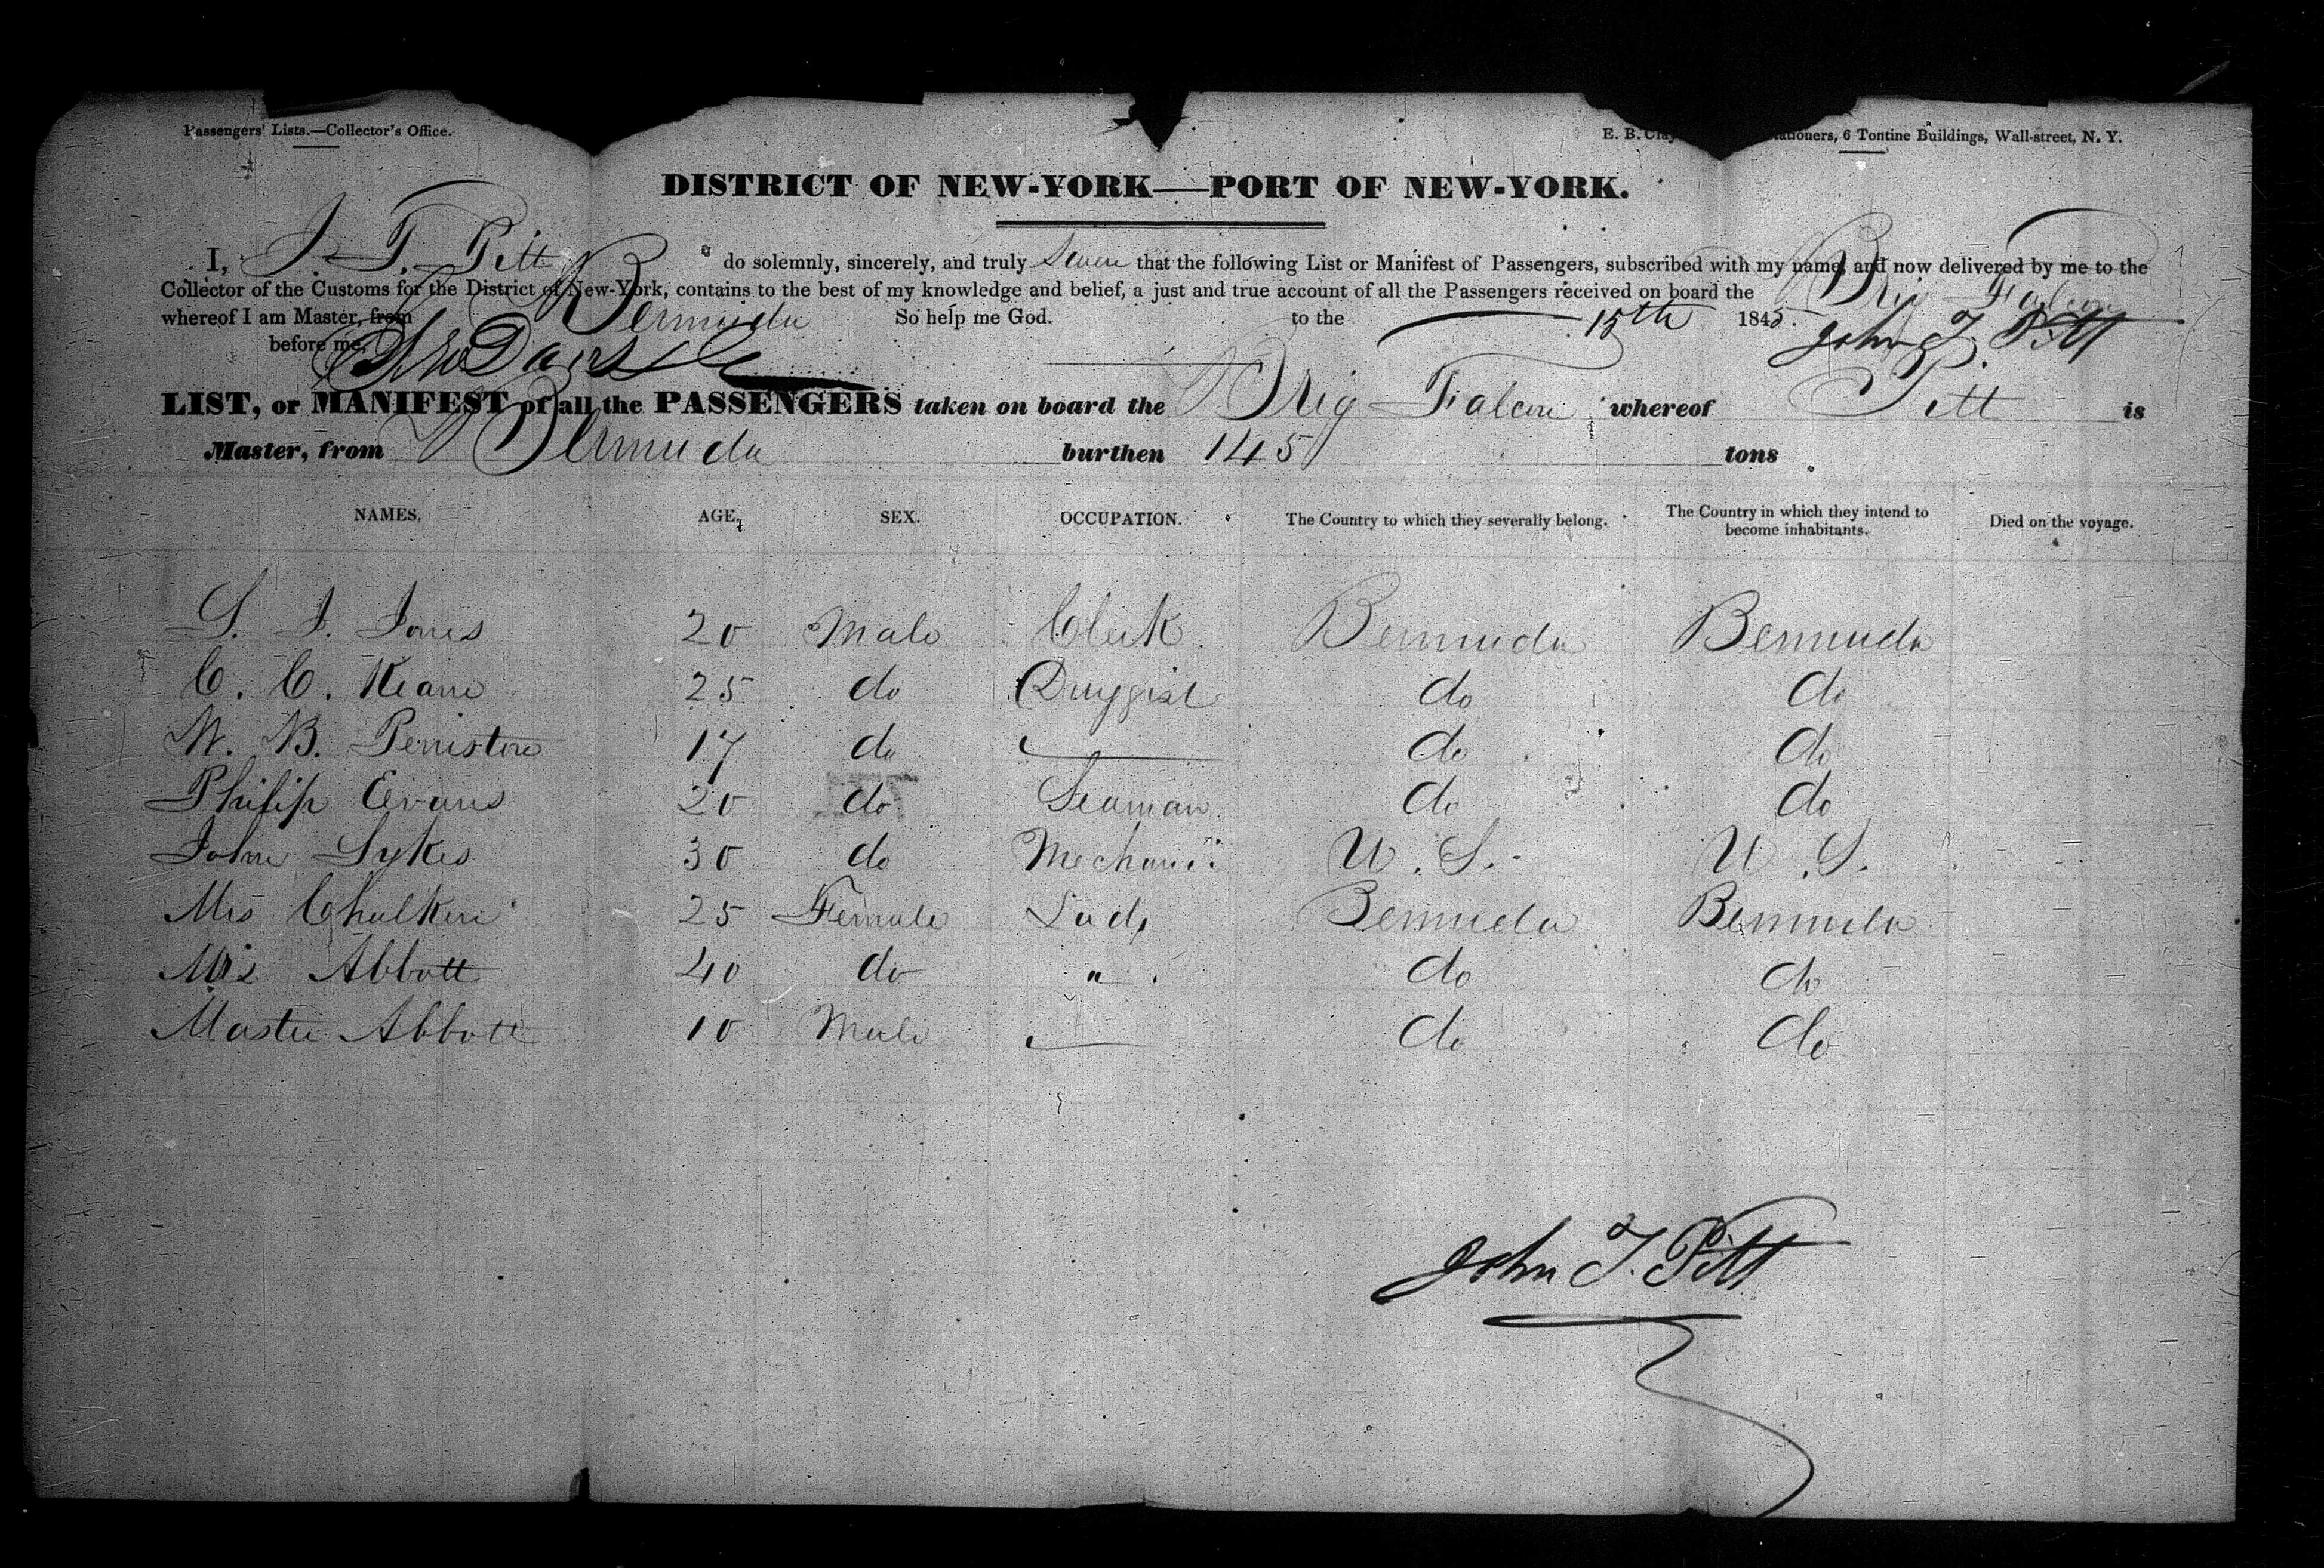 Passengers' Lists.—Collector's Office.
E. B. Clay 6 Tontine Buildings, Wall-street, N. Y.
DISTRICT OF NEW-YORK—PORT OF NEW-YORK.
I, J. T. Pitt do solemnly, sincerely, and truly that the following List or Manifest of Passengers, subscribed with my name, and now delivered by me to the
Collector of the Customs for the District of New-York, contains to the best of my knowledge and belief, a just and true account of all the Passengers received on board the Brig Falcon
whereof I am Master, from Bermuda So help me God. to the 15th 1845. John T. Pitt
before me,
LIST, or MANIFEST of all the PASSENGERS taken on board the Brig Falcon whereof Pitt is
Master, from Bermuda burthen 145 tons
NAMES. AGE, SEX. OCCUPATION. The Country to which they severally belong. The Country in which they intend to become inhabitants. Died on the voyage.
S. J. Jones 20 Male Clerk Bermuda Bermuda
C. C. Keane 25 do Druggist do do
W. B. Peniston 17 do — do do
Philip Evans 20 do Seaman do do
John Sykes 30 do Mechanic U. S. U. S.
Mrs 25 Female Lady Bermuda Bermuda
Mrs Abbott 40 do " do do
Master Abbott 10 Male — do do
John T. Pitt